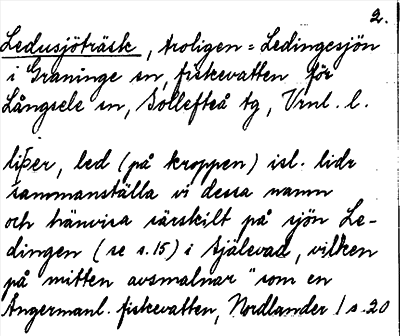 2.
Ledusjöträsk, troligen = Ledingesjön
i Graninge sn, fiskevatten för
Långsele sn, Sollefteå tg, Vrnl. l.
liþer, led (på kroppen) isl. lidr
sammanställa vi dessa namn
och hänvisa särskilt på sjön Le-
dingen (se s.15) i Själevad, vilken
på mitten avsmalnar "som en
Ångermanl. fiskevatten, Nordlander 1 s. 20